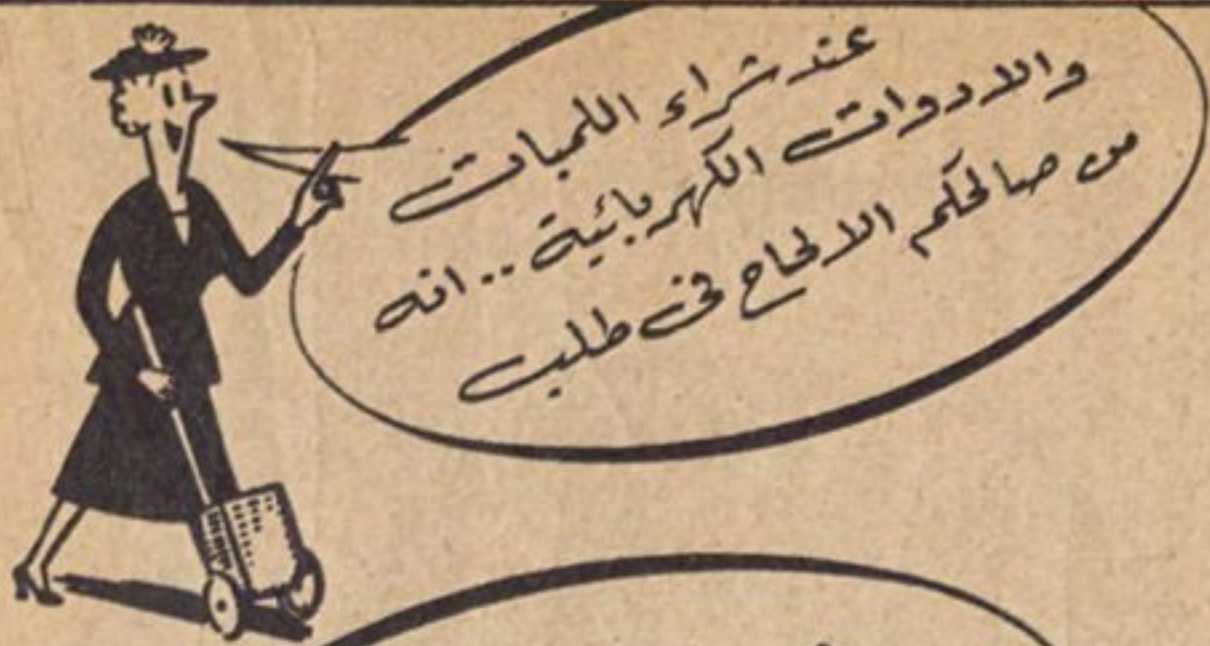 عند شراء اللمبات
والادوات الكهربائية .. انه
من صالحكم الالحاح فى طلب